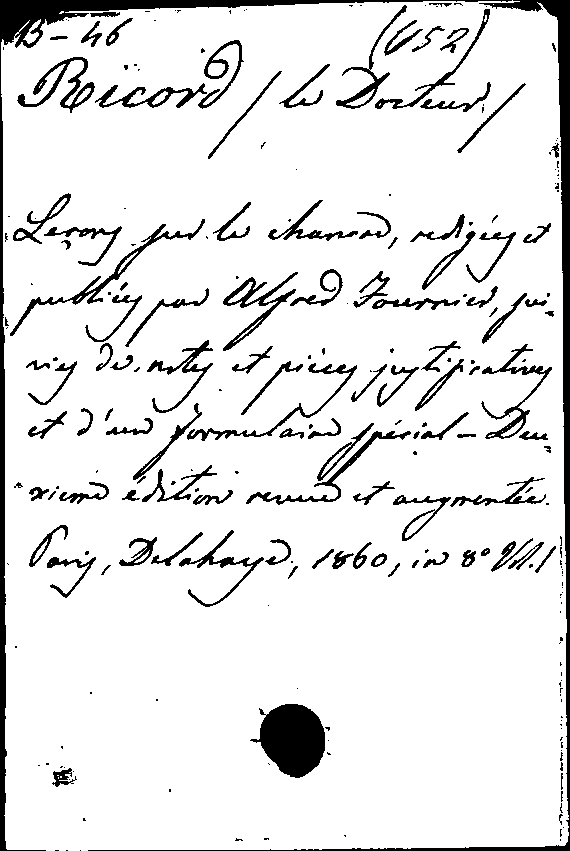 B-46 (652)
Ricord / le Docteur /
Leçons sur le chancre, redigées et
publiées par Alfred Fournier, sui-
vies de notes et pièces justificatives
et d'un formulaire spécial - Deu-
xieme édition revue et augmentée.
Paris, Delahaye, 1860, in 8° Vol. 1